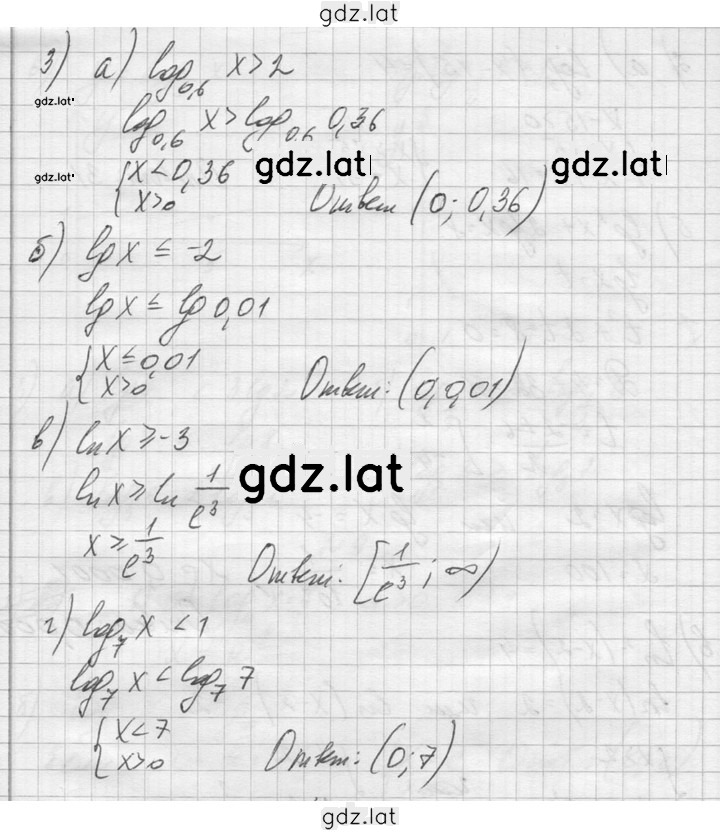 gdz.lat
3) а) log₀,₆ x > 2
gdz.lat
log₀,₆ x > log₀,₆ 0,36
gdz.lat gdz.lat
gdz.lat
{ x < 0,36
x > 0 Ответ (0; 0,36)
б) lg x ≤ -2
lg x ≤ lg 0,01
{ x ≤ 0,01
x > 0 Ответ: (0, 0,01)
в) ln x ≥ -3
ln x ≥ ln 1/e³ gdz.lat
x ≥ 1/e³ Ответ: [1/e³; ∞)
г) log₇ x < 1
log₇ x < log₇ 7
{ x < 7
x > 0 Ответ: (0; 7)
gdz.lat